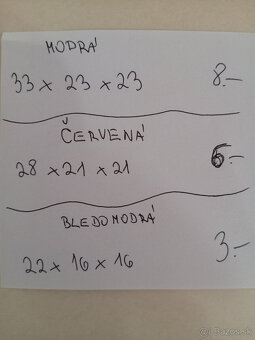 MODRÁ
33 x 23 x 23 8.-
ČERVENÁ
28 x 21 x 21 6.-
BLEDOMODRÁ
22 x 16 x 16 3.-
Bazos.sk